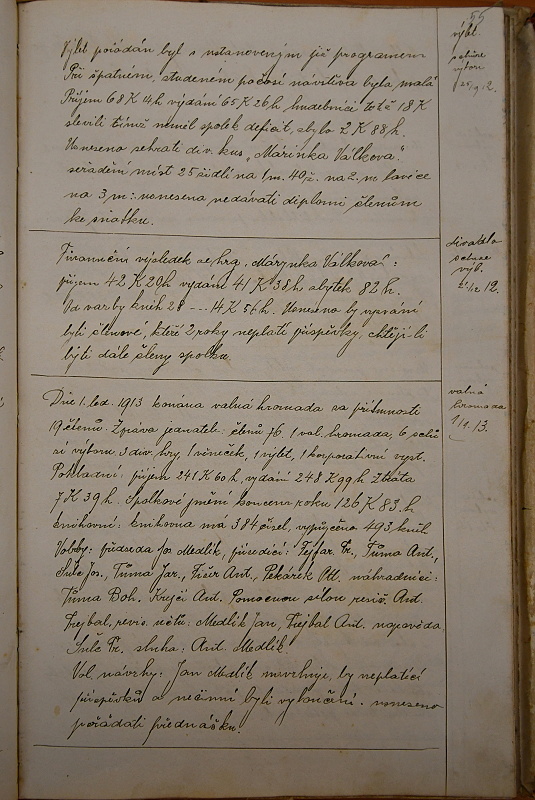 55
výlet.
schůze
výbor.
Výlet pořádán byl s ustanoveným již programem
Při špatném, studeném počasí návštěva byla malá
Příjem 68 K 14 h vydání 65 K 26 h, hudebníci totiž 18 K
slevili tímže neměl spolek deficit, zbylo 2 K 88 h.
Usneseno sehrati div. kus „Márinka Válkova".
seřadění míst 25 židlí na 1 m. 40 ž. na 2. m lavice
na 3 m: usneseno nedávati diplomů členům
ke sňatku.
divadlo
schůze
výb.
12.
Finanční výsledek ze hry „Márynka Válková":
příjem 42 K 20 h vydání 41 K 38 h zbytek 82 h.
Od vazby knih 28 --- 14 K 56 h. Usneseno by vyzváni
byli členové, kteří 2 roky neplatí příspěvky, chtějí-li
býti dále členy spolku.
valná
hromada
1/1. 13.
Dne 1. led. 1913 konána valná hromada za přítomnosti
19 členů. Zpráva jednatele: členů 76, 1 val. hromada, 6 schů
zí výboru, 3 div. hry, 1 věneček, 1 výlet, 1 korporativní vyst.
Pokladní: příjem 241 K 60 h, vydání 248 K 99 h ztráta
7 K 39 h. Spolkové jmění koncem roku 126 K 83 h.
knihovní: knihovna má 384 čísel, vypůjčeno 493 knih
Volby: předseda Jos Medlík, přísedící: Fejfar Fr., Tůma Ant.,
Šulc Jos., Tůma Jar., Fišer Ant., Pekárek Ott. náhradníci:
Tůma Boh. Krejčí Ant. Pomocnou silou režis. Ant.
Frejbal, revis. účtů: Medlík Jan, Frejbal Ant. napověda
Šulc Fr. sluha: Ant. Medlík.
Vol. návrhy: Jan Medlík navrhuje, by neplatící
příspěvků a nečinní byli vyloučeni. usneseno
pořádati přednášku.